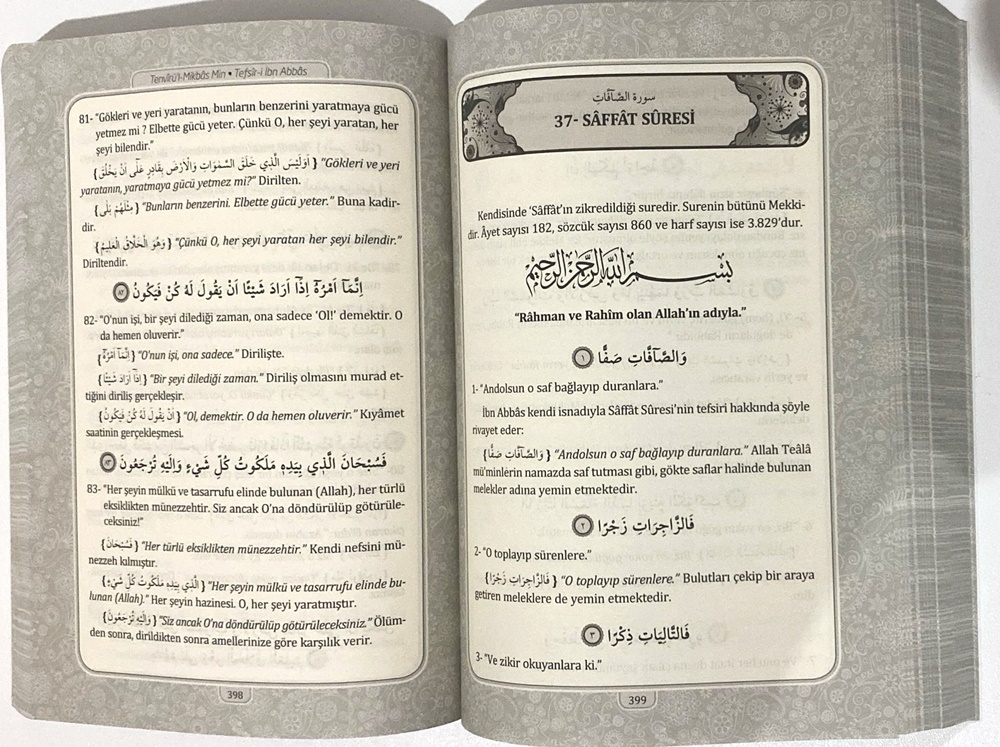 Tenvîrü'l-Mikbâs Min • Tefsîr-i İbn Abbâs
81- "Gökleri ve yeri yaratanın, bunların benzerini yaratmaya gücü
yetmez mi ? Elbette gücü yeter. Çünkü O, her şeyi yaratan, her
şeyi bilendir."
{ اَوَلَيْسَ الَّذ۪ي خَلَقَ السَّمٰوَاتِ وَالْاَرْضَ بِقَادِرٍ عَلٰٓى اَنْ يَخْلُقَ } "Gökleri ve yeri
yaratanın, yaratmaya gücü yetmez mi?" Dirilten.
{ مِثْلَهُمْ بَلٰى } "Bunların benzerini. Elbette gücü yeter." Buna kadir-
dir.
{ وَهُوَ الْخَلَّاقُ الْعَل۪يمُ } "Çünkü O, her şeyi yaratan her şeyi bilendir."
Diriltendir.
اِنَّمَٓا اَمْرُهُٓ اِذَٓا اَرَادَ شَيْـًٔا اَنْ يَقُولَ لَهُ كُنْ فَيَكُونُ ﴿٨٢﴾
82- "O'nun işi, bir şeyi dilediği zaman, ona sadece 'Ol!' demektir. O
da hemen oluverir."
{ اِنَّمَٓا اَمْرُهُٓ } "O'nun işi, ona sadece." Dirilişte.
{ اِذَٓا اَرَادَ شَيْـًٔا } "Bir şeyi dilediği zaman." Diriliş olmasını murad et-
tiğini diriliş gerçekleşir.
{ اَنْ يَقُولَ لَهُ كُنْ فَيَكُونُ } "Ol, demektir. O da hemen oluverir." Kıyâmet
saatinin gerçekleşmesi.
فَسُبْحَانَ الَّذ۪ي بِيَدِه۪ مَلَكُوتُ كُلِّ شَيْءٍ وَاِلَيْهِ تُرْجَعُونَ ﴿٨٣﴾
83- "Her şeyin mülkü ve tasarrufu elinde bulunan (Allah), her türlü
eksiklikten münezzehtir. Siz ancak O'na döndürülüp götürüle-
ceksiniz!"
{ فَسُبْحَانَ } "Her türlü eksiklikten münezzehtir." Kendi nefsini mü-
nezzeh kılmıştır.
{ الَّذ۪ي بِيَدِه۪ مَلَكُوتُ كُلِّ شَيْءٍ } "Her şeyin mülkü ve tasarrufu elinde bu-
lunan (Allah)." Her şeyin hazinesi. O, her şeyi yaratmıştır.
{ وَاِلَيْهِ تُرْجَعُونَ } "Siz ancak O'na döndürülüp götürüleceksiniz." Ölüm-
den sonra, dirildikten sonra amellerinize göre karşılık verir.
398
سورة الصَّٓافَّاتِ
37- SÂFFÂT SÛRESİ
Kendisinde 'Sâffât'ın zikredildiği suredir. Surenin bütünü Mekki-
dir. Âyet sayısı 182, sözcük sayısı 860 ve harf sayısı ise 3.829'dur.
بِسْمِ اللّٰهِ الرَّحْمٰنِ الرَّحِيمِ
"Râhman ve Rahîm olan Allah'ın adıyla."
وَالصَّٓافَّاتِ صَفًّا ﴿١﴾
1- "Andolsun o saf bağlayıp duranlara."
İbn Abbâs kendi isnadıyla Sâffât Sûresi'nin tefsiri hakkında şöyle
rivayet eder:
{ وَالصَّٓافَّاتِ صَفًّا } "Andolsun o saf bağlayıp duranlara." Allah Teâlâ
mü'minlerin namazda saf tutması gibi, gökte saflar halinde bulunan
melekler adına yemin etmektedir.
فَالزَّاجِرَاتِ زَجْرًا ﴿٢﴾
2- "O toplayıp sürenlere."
{ فَالزَّاجِرَاتِ زَجْرًا } "O toplayıp sürenlere." Bulutları çekip bir araya
getiren meleklere de yemin etmektedir.
فَالتَّالِيَاتِ ذِكْرًا ﴿٣﴾
3- "Ve zikir okuyanlara ki."
399